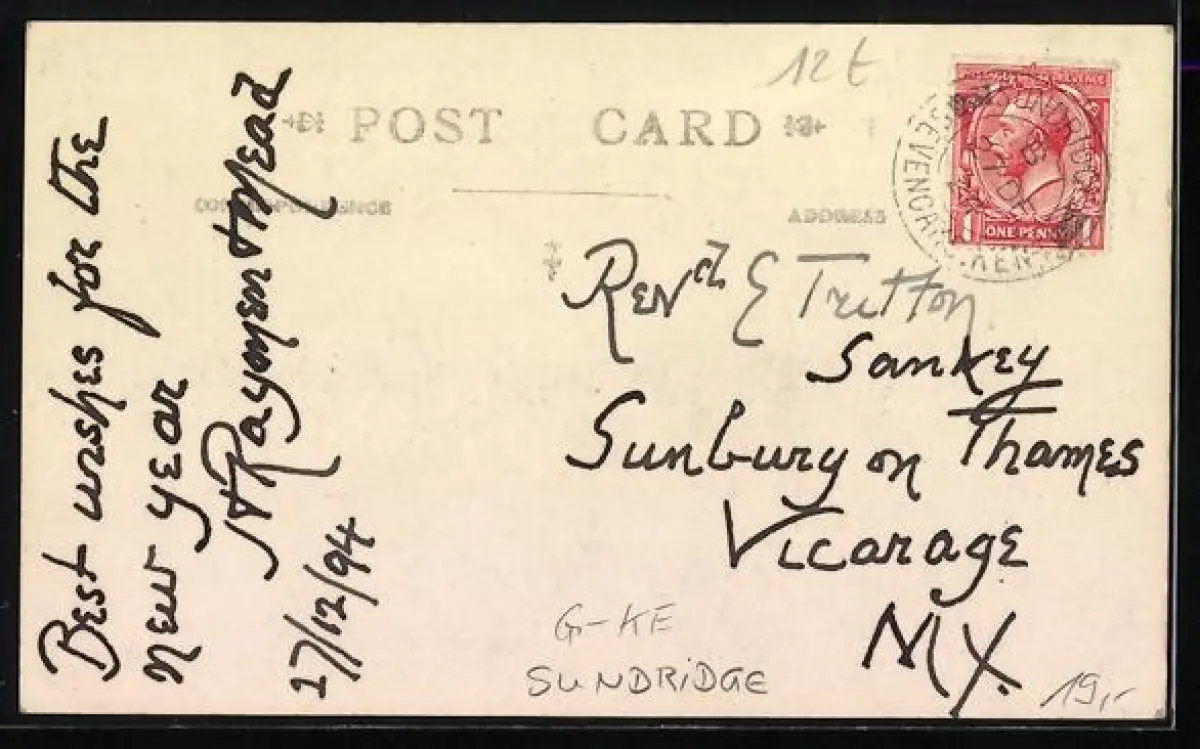 12t
POST CARD
CORRESPONDENCE
ADDRESS
ONE PENNY
SUNDRIDGE
SEVENOAKS. KENT
Revd E Tritton
Sankey
Sunbury on Thames
Vicarage
MX.
Best wishes for the
new year
17/12/94
G-KE
SUNDRIDGE
19,-